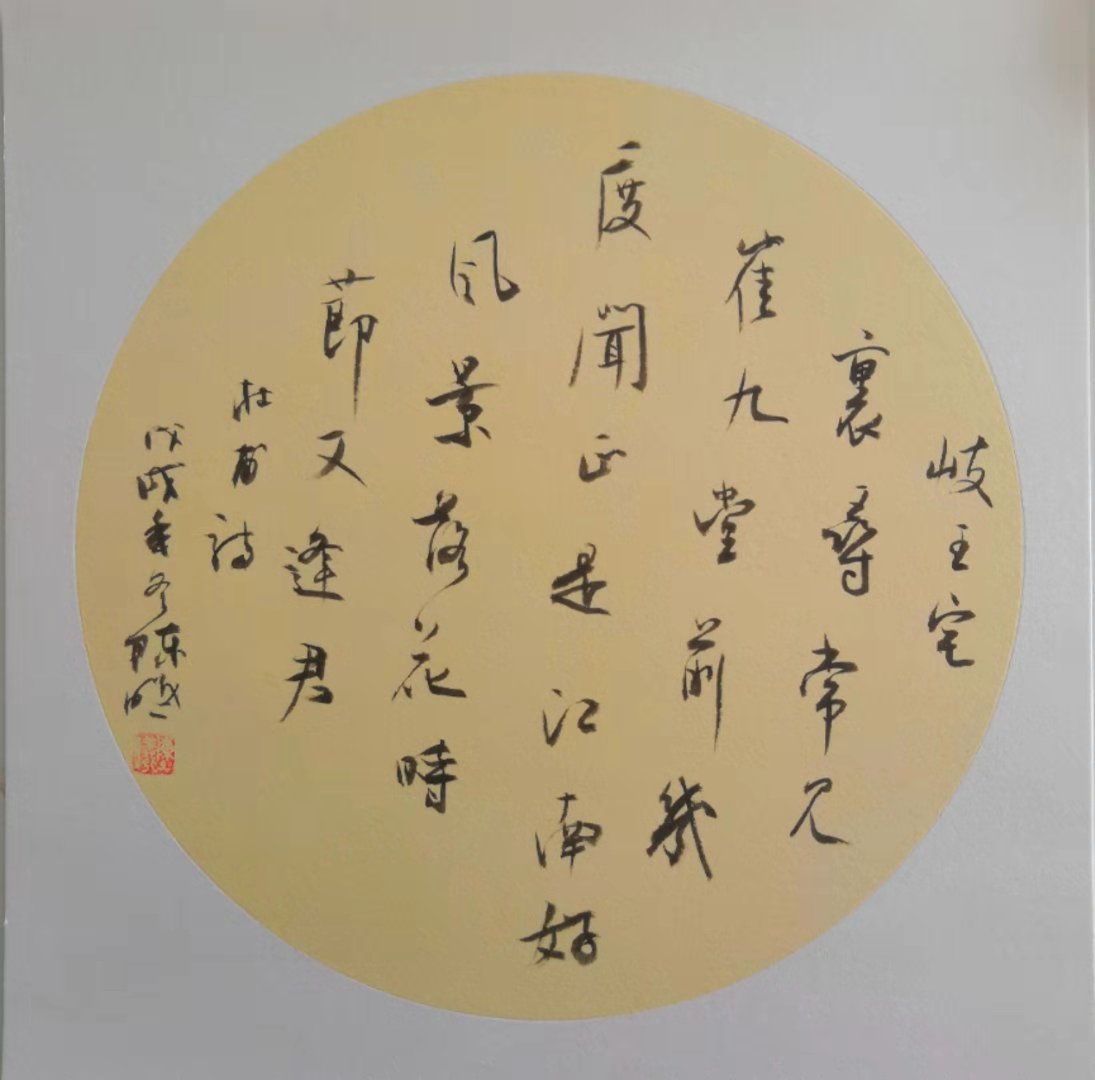 岐王宅
裏尋常見
崔九堂前幾
度聞正是江南好
風景落花時
節又逢君
杜甫詩
戊戌年冬陳曦